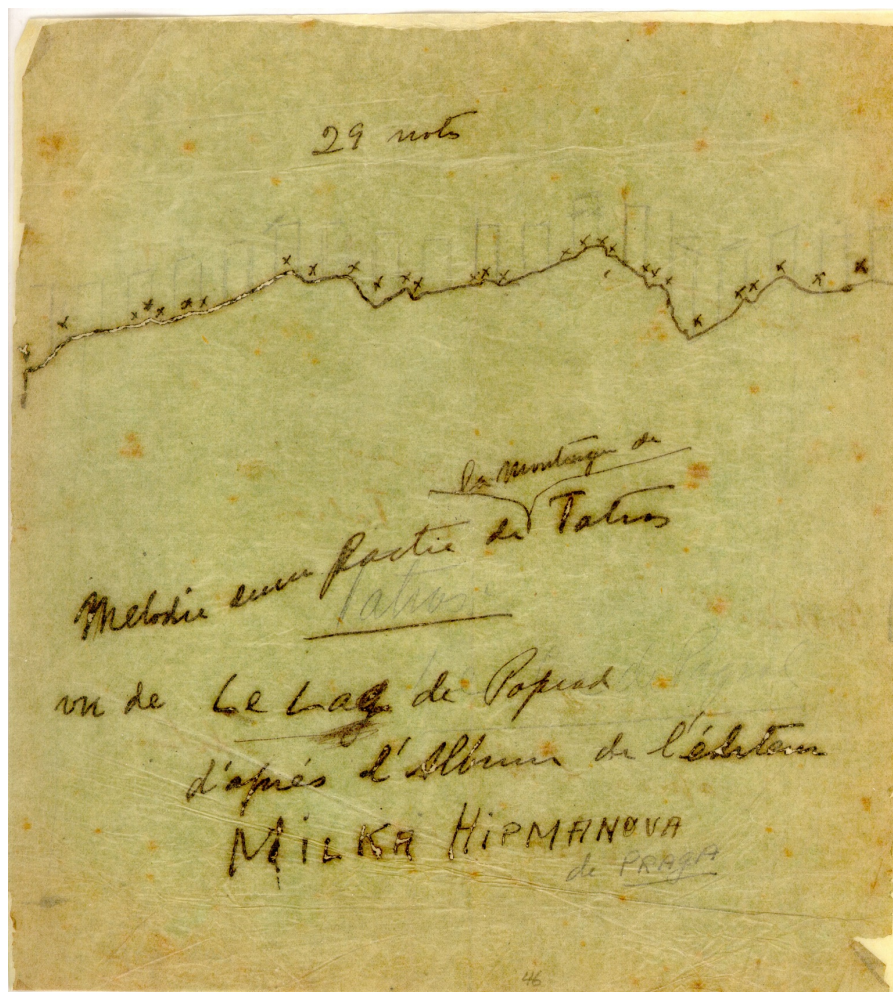 29 notes
la Montagne de
Melodie sur Partie de Tatras
Tatras
vu de Le Lac de Poprad
d'après l'Album de l'éditeur
MILKA HIPMANOVA
de PRAGA
46